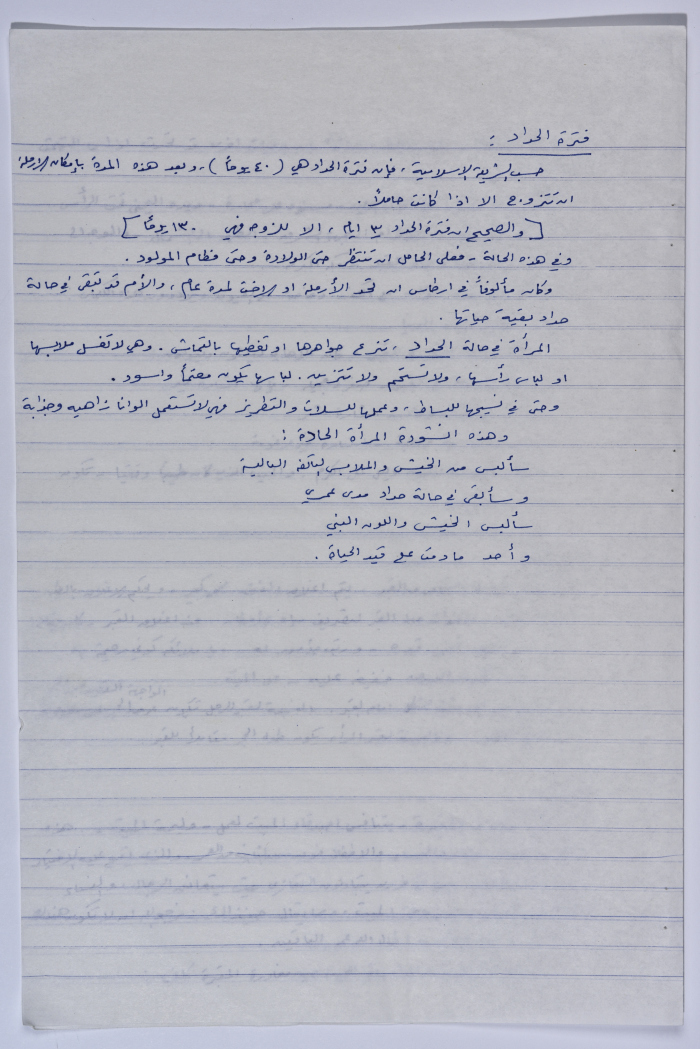 فترة الحداد :
حسب الشريعة الاسلامية ، فإن فترة الحداد هي ( ٤٠ يوماً ) ، وبعد هذه المدة بإمكان الارملة
ان تتزوج الا اذا كانت حاملاً .
[ والصحيح ان فترة الحداد ٣ ايام ، الا للزوج فهي ١٣٠ يوماً ]
وفي هذه الحالة - فعلى الحامل ان تنتظر حتى الولادة وحتى فطام المولود .
وكان مألوفاً في ارطاس ان تحد الأرملة او الاخت لمدة عام ، والأم قد تبقى في حالة
حداد بقية حياتها .
المرأة في حالة الحداد ، تنزع جواهرها او تغطيها بالقماش . وهي لا تغسل ملابسها
او لباس رأسها ، ولا تستحم ولا تتزين . لباسها يكون معتماً واسود .
وحتى في نسيجها للبساط ، وعملها للسلات والتطريز فهي لا تستعمل الوانا زاهيه وجذابة
وهذه انشودة المرأة الحادة :
سألبس من الخيش والملابس البالية
وسأبقى في حالة حداد مدى عمري
سألبس الخيش واللون البني
وأحد ما دمت على قيد الحياة .